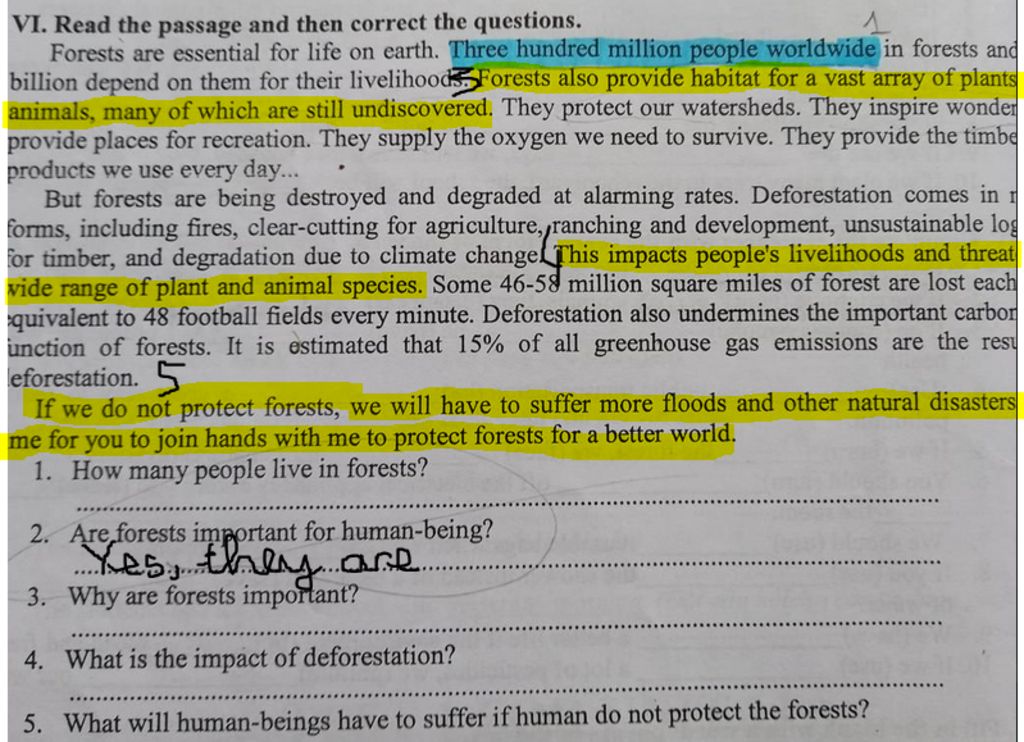 VI. Read the passage and then correct the questions.
1
Forests are essential for life on earth. Three hundred million people worldwide in forests and
billion depend on them for their livelihoods. Forests also provide habitat for a vast array of plants
animals, many of which are still undiscovered. They protect our watersheds. They inspire wonder
provide places for recreation. They supply the oxygen we need to survive. They provide the
products we use every day...
But forests are being destroyed and degraded at alarming rates. Deforestation comes in
forms, including fires, clear-cutting for agriculture, ranching and development, unsustainable
for timber, and degradation due to climate change. This impacts people's livelihoods and
wide range of plant and animal species. Some 46-58 million square miles of forest are lost each
equivalent to 48 football fields every minute. Deforestation also undermines the important
of forests. It is estimated that 15% of all greenhouse gas emissions are the
5
If we do not protect forests, we will have to suffer more floods and other natural disasters
me for you to join hands with me to protect forests for a better world.
1. How many people live in forests?
2. Are forests important for human-being?
Yes, they are
3. Why are forests important?
4. What is the impact of deforestation?
5. What will human-beings have to suffer if human do not protect the forests?